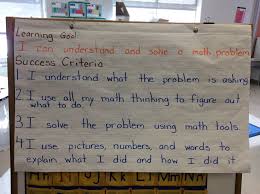 Learning Goal
I can understand and solve a math problem
Success Criteria
1 I understand what the problem is asking
2 I use all my math thinking to figure out
what to do.
3 I solve the problem using math tools.
4 I use pictures, numbers, and words to
explain what I did and how I did it